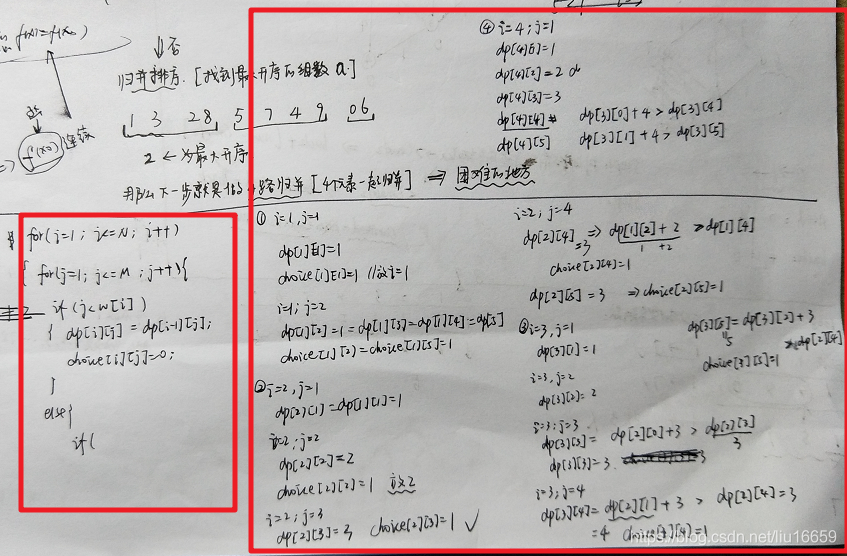 f(x)=f(x₀)
连续
f(x₀)
↓否
归并排序.[找到最大升序的组数a.]
1 3 28 5 7 4 9 06
2 ← 为最大升序
[4个元素一起归并] ⇒ 困难的地方
for(i=1; i<=N; i++)
{ for(j=1; j<=M; j++){
if(j<w[i])
{ dp[i][j] = dp[i-1][j];
choice[i][j]=0;
}
else{
if(
① i=1, j=1
dp[1][1]=1
choice[1][1]=1 //放i=1
i=1; j=2
dp[1][2]=1=dp[1][3]=dp[1][4]=dp[5]
choice[1][2]=choice[1][5]=1
② i=2, j=1
dp[2][1]=dp[1][1]=1
i=2; j=2
dp[2][2]=2
choice[2][2]=1 放2
i=2; j=3
dp[2][3]=3 choice[2][3]=1 ✓
i=2; j=4
dp[2][4]=3 ⇒ dp[1][2]+2 > dp[1][4]
1 +2
choice[2][4]=1
dp[2][5]=3 ⇒choice[2][5]=1
③ i=3, j=1
dp[3][1]=1
i=3, j=2
dp[3][2]=2
i=3; j=3
dp[3][3]= dp[2][0]+3 > dp[2][3]
3
dp[3][3]=3
i=3, j=4
dp[3][4]=dp[2][1]+3 > dp[2][4]=3
=4 choice[3][4]=1
dp[3][5]=dp[3][2]+3
5
>dp[2][4]
choice[3][5]=1
④ i=4; j=1
dp[4][1]=1
dp[4][2]=2
dp[4][3]=3
dp[4][4] dp[3][0]+4 > dp[3][4]
dp[4][5] dp[3][1]+4 > dp[3][5]
https://blog.csdn.net/liu16659